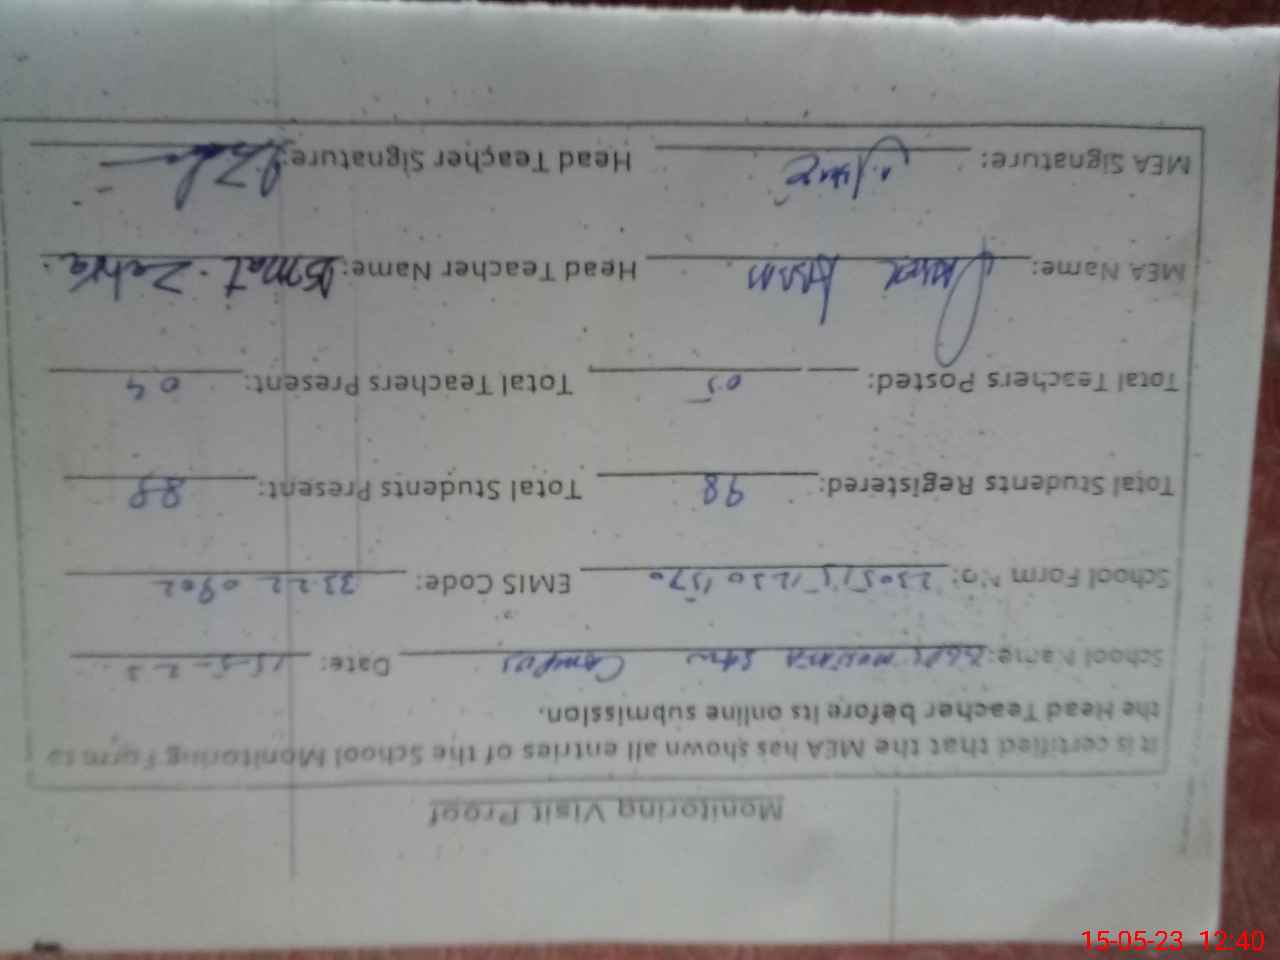 Monitoring Visit Proof
It is certified that the MEA has shown all entries of the School Monitoring Form to
the Head Teacher before its online submission.
School Name: Campus Date: 15-5-23
School Form No: EMIS Code: 33220902
Total Students Registered: 98 Total Students Present: 88
Total Teachers Posted: 05 Total Teachers Present: 04
MEA Name: Head Teacher Name: Ismat Zahra.
MEA Signature: Head Teacher Signature:
15-05-23 12:40